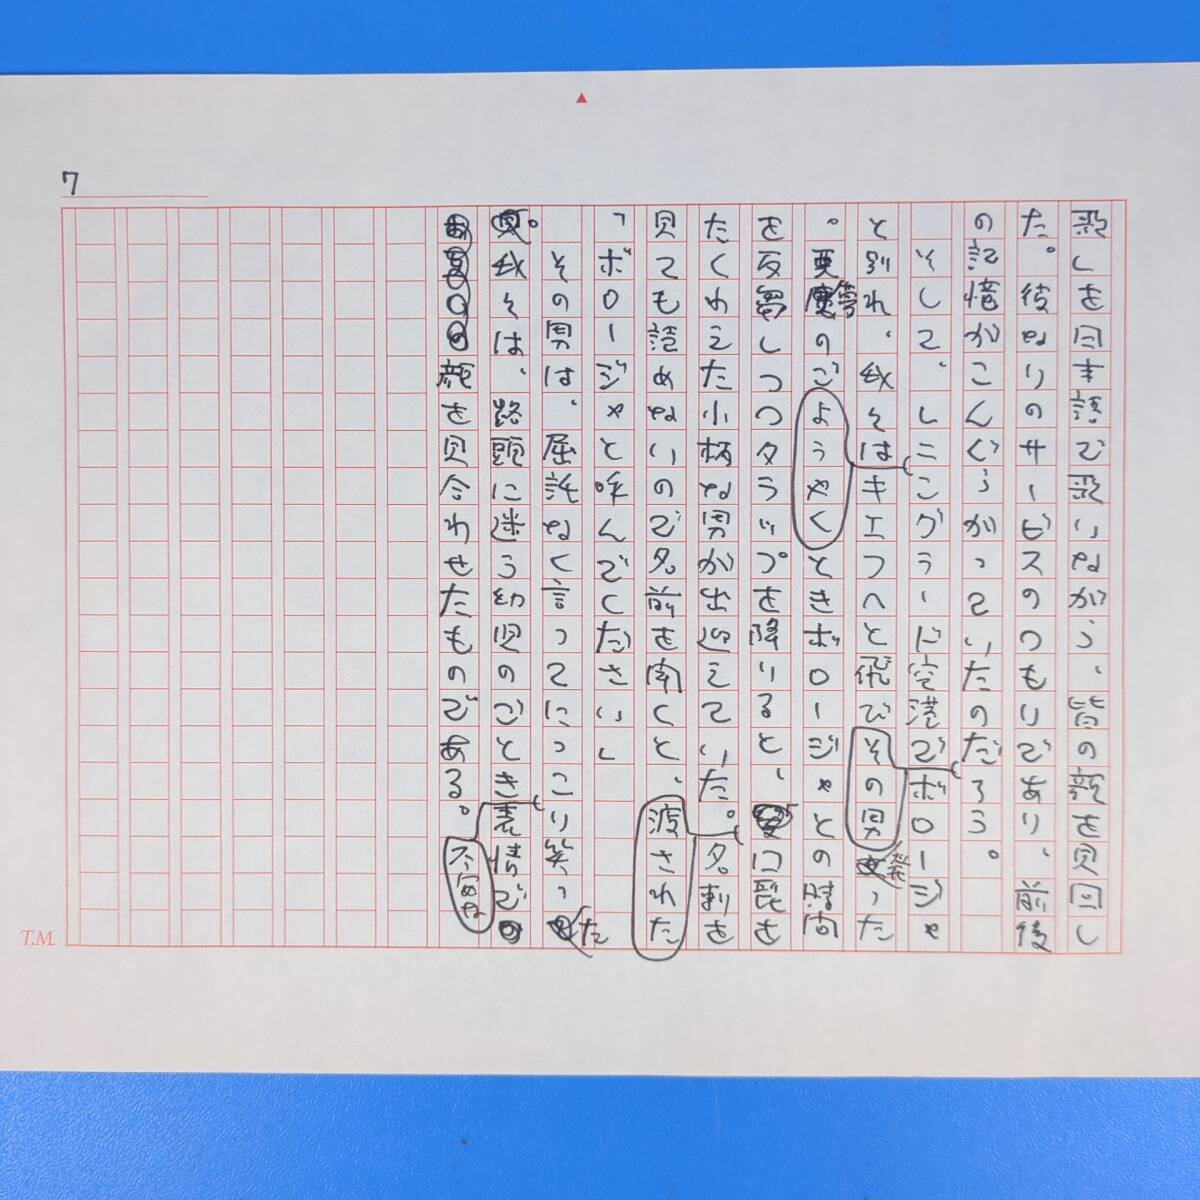 7
歌しを日本語で歌いながら、皆の顔を見回し
た。彼なりのサービスのつもりであり、前後
の記憶がこんぐらがっていたのだろう。
そして、レニングラード空港でボロージャ
と別れ、我々はキエフへと飛び発った
ようやく
。悪夢のごときボロージャとの時間
を反芻しつつタラップを降りると、口髭を
たくわえた小柄な男が出迎えていた。名刺を
その男
渡された
見ても読めないので名前を聞くと、
「ボロージャと呼んでください」
その男は、屈託なく言ってにっこり笑った
。我々は、路頭に迷う幼児のごとき表情で
不安な
顔を見合わせたものである。
T.M.